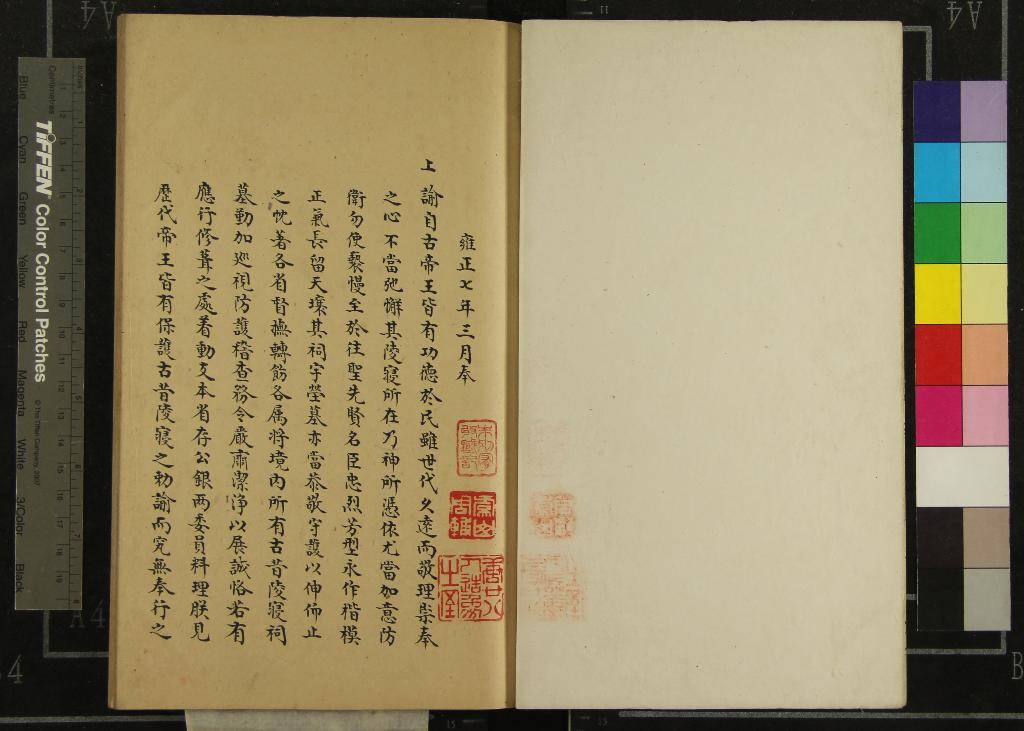 雍正七年三月奉
上諭自古帝王皆有功德於民雖世代久遠而敬理崇奉
之心不當弛懈其陵寢所在乃神所憑依尤當加意防
衛勿使褻慢至於往聖先賢名臣忠烈芳型永作楷模
正氣長留天壤其祠宇塋墓亦當恭敬守護以伸仰止
之忱著各省督撫轉飭各属将境内所有古昔陵寢祠
墓勤加廵視防護稽查務令嚴肅潔淨以展誠恪若有
應行修葺之處著動支本省存公銀两委員料理朕見
歷代帝王皆有保護古昔陵寢之勅諭而究無奉行之
TIFFEN Color Control Patches
© The Tiffen Company, 2007
Centimetres
Inches
Blue
Cyan
Green
Yellow
Red
Magenta
White
3/Color
Black
A4
A4
A4